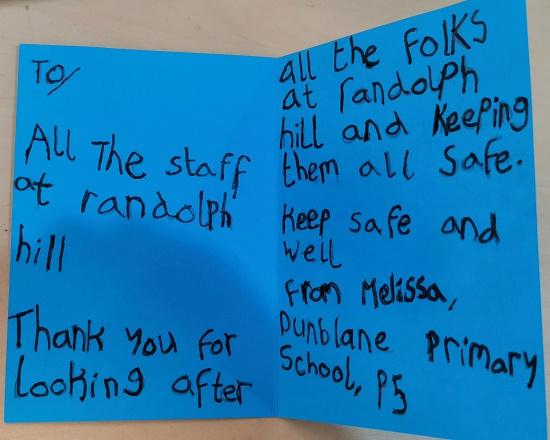 To/
All The staff
at randolph
hill
Thank you for
Looking after
all the Folks
at randolph
hill and Keeping
them all Safe.
Keep safe and
well
From Melissa,
Dunblane Primary
School, P5